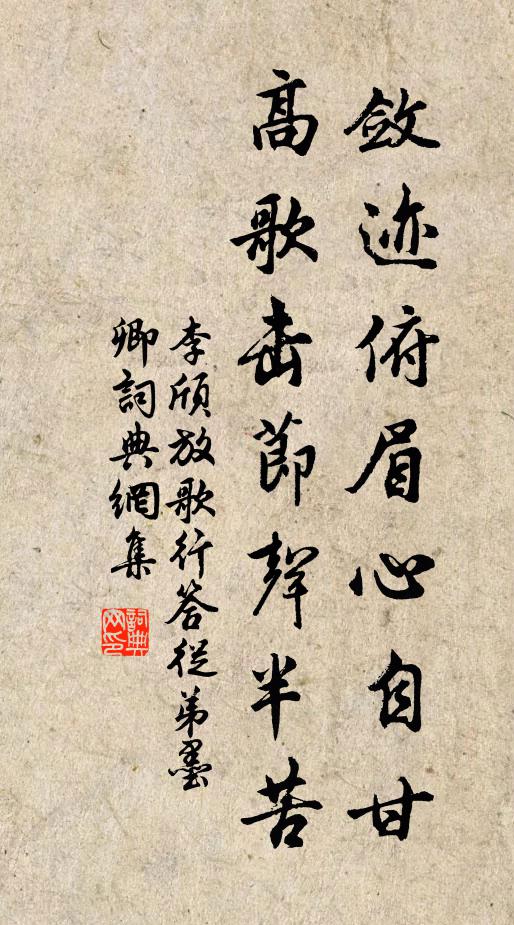 斂迹俯眉心自甘
高歌击節聲半苦
李頎放歌行答從弟墨
卿詞典網集
詞典
网印